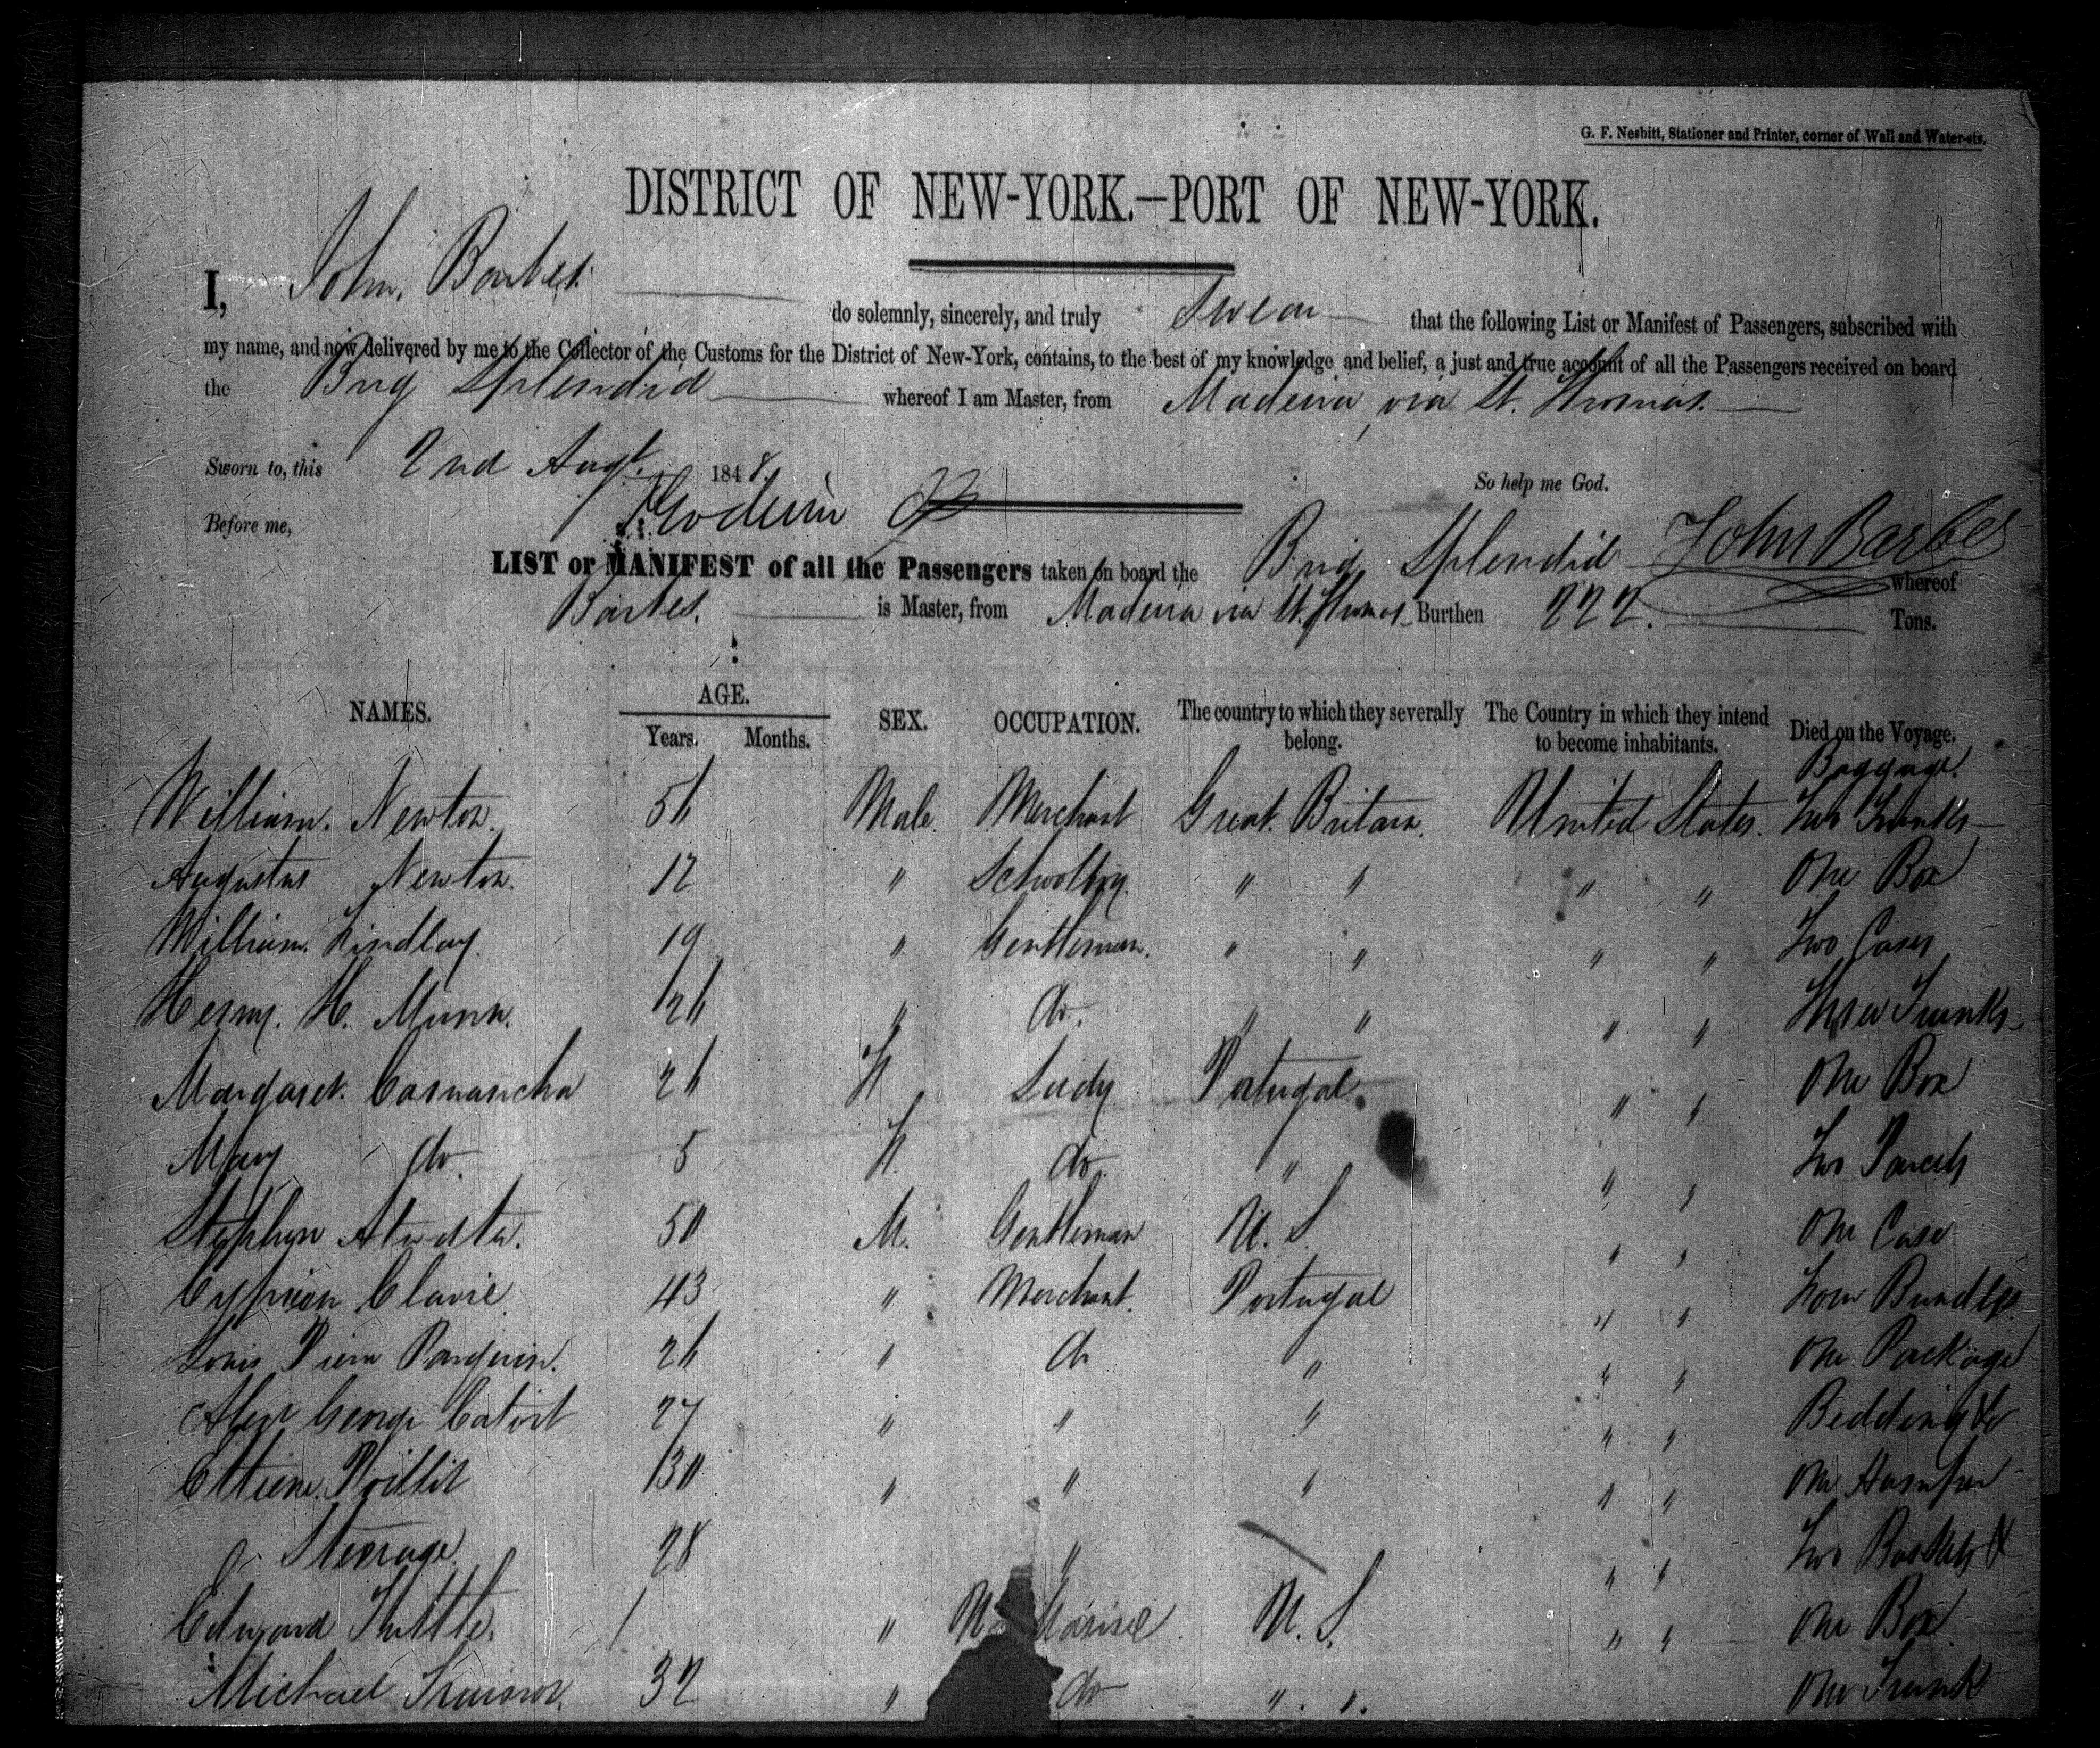 G. F. Nesbitt, Stationer and Printer, corner of Wall and Water-sts.
DISTRICT OF NEW-YORK.—PORT OF NEW-YORK.
I, John Barbes do solemnly, sincerely, and truly Swear that the following List or Manifest of Passengers, subscribed with
my name, and now delivered by me to the Collector of the Customs for the District of New-York, contains, to the best of my knowledge and belief, a just and true account of all the Passengers received on board
the Brig Splendid whereof I am Master, from Madeira via St. Thomas.
Sworn to, this 2nd Augt. 1848. So help me God.
Before me, John Barbes
LIST or MANIFEST of all the Passengers taken on board the Brig Splendid whereof
Barbes. is Master, from Madeira via St. Thomas Burthen 222. Tons.
NAMES. AGE. Years. Months. SEX. OCCUPATION. The country to which they severally belong. The Country in which they intend to become inhabitants. Died on the Voyage.
Baggage.
William. Newton. Male. Merchant Great. Britain. United States. Two Trunks
Augustus Newton. 12 " Schoolboy. " " " " One Box
William. Lindlay. 19 " Gentleman. " " " " Two Cases
Henry. H. Munn. " do. " " " " Three Trunks
Margaret. F Lady Portugal. " " One Box
Mary do. 5 F. do. " " " Two Parcels
Stephen 50 M. Gentleman U. S. " " One Case
Cyprian Clavie 43 " Merchant. Portugal " " Four Bundles
Louis " do " " " One Package
Alexr George 27 " " " " " Bedding &c
Ettiene 30 " " " " " One Hamper
Steerage 28 " " " Two Baskets &
Edward Tuttle. " U. S. " " One Box.
Michael 32 " do " " One Trunk